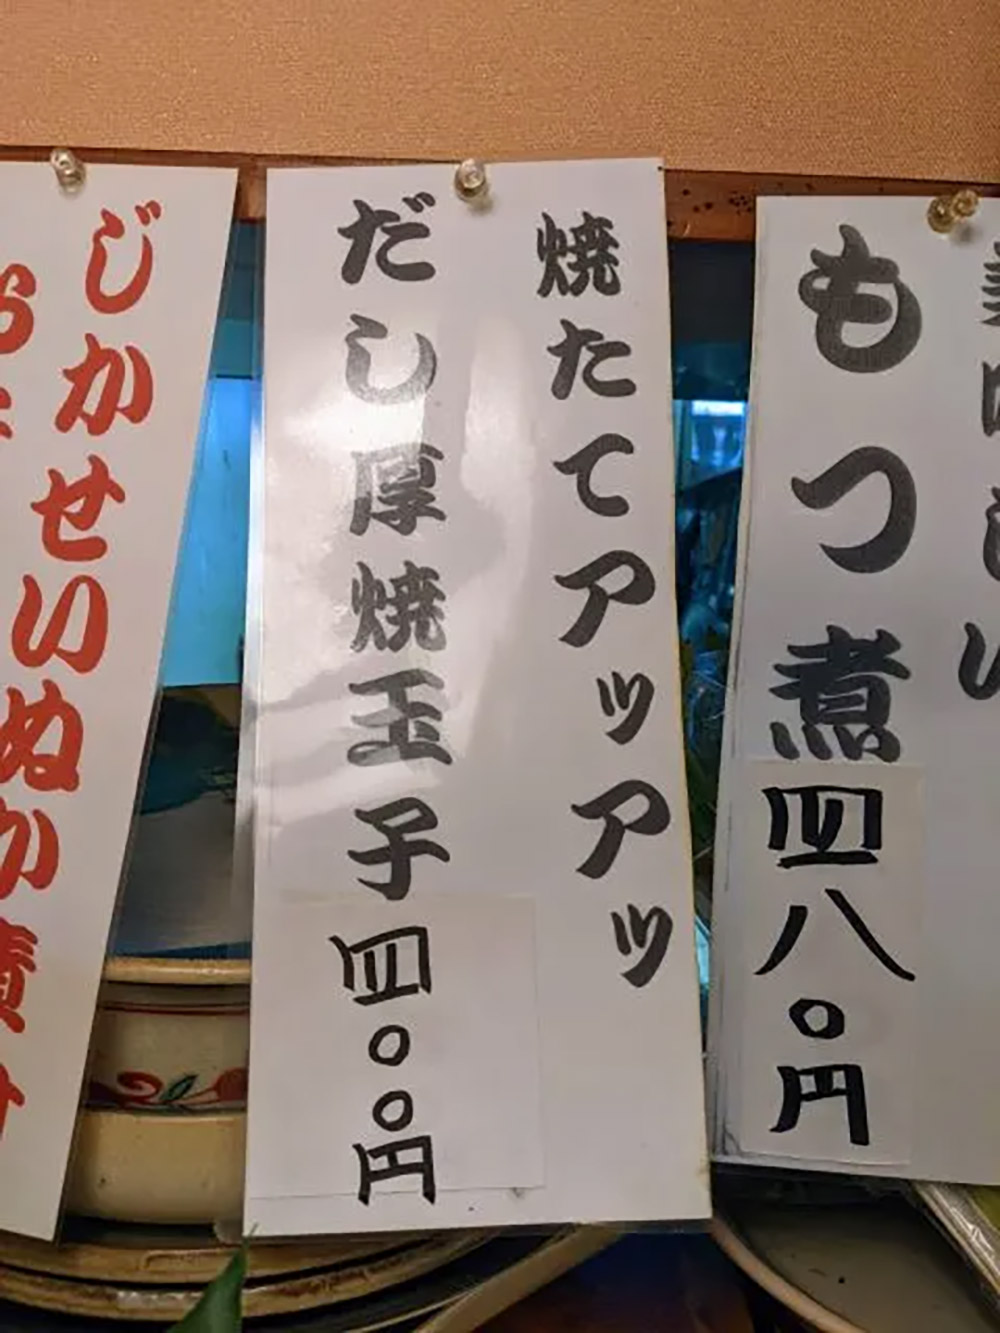 もつ煮四八〇円
焼たてアッアッ
だし厚焼玉子四〇〇円
じかせいぬか漬け